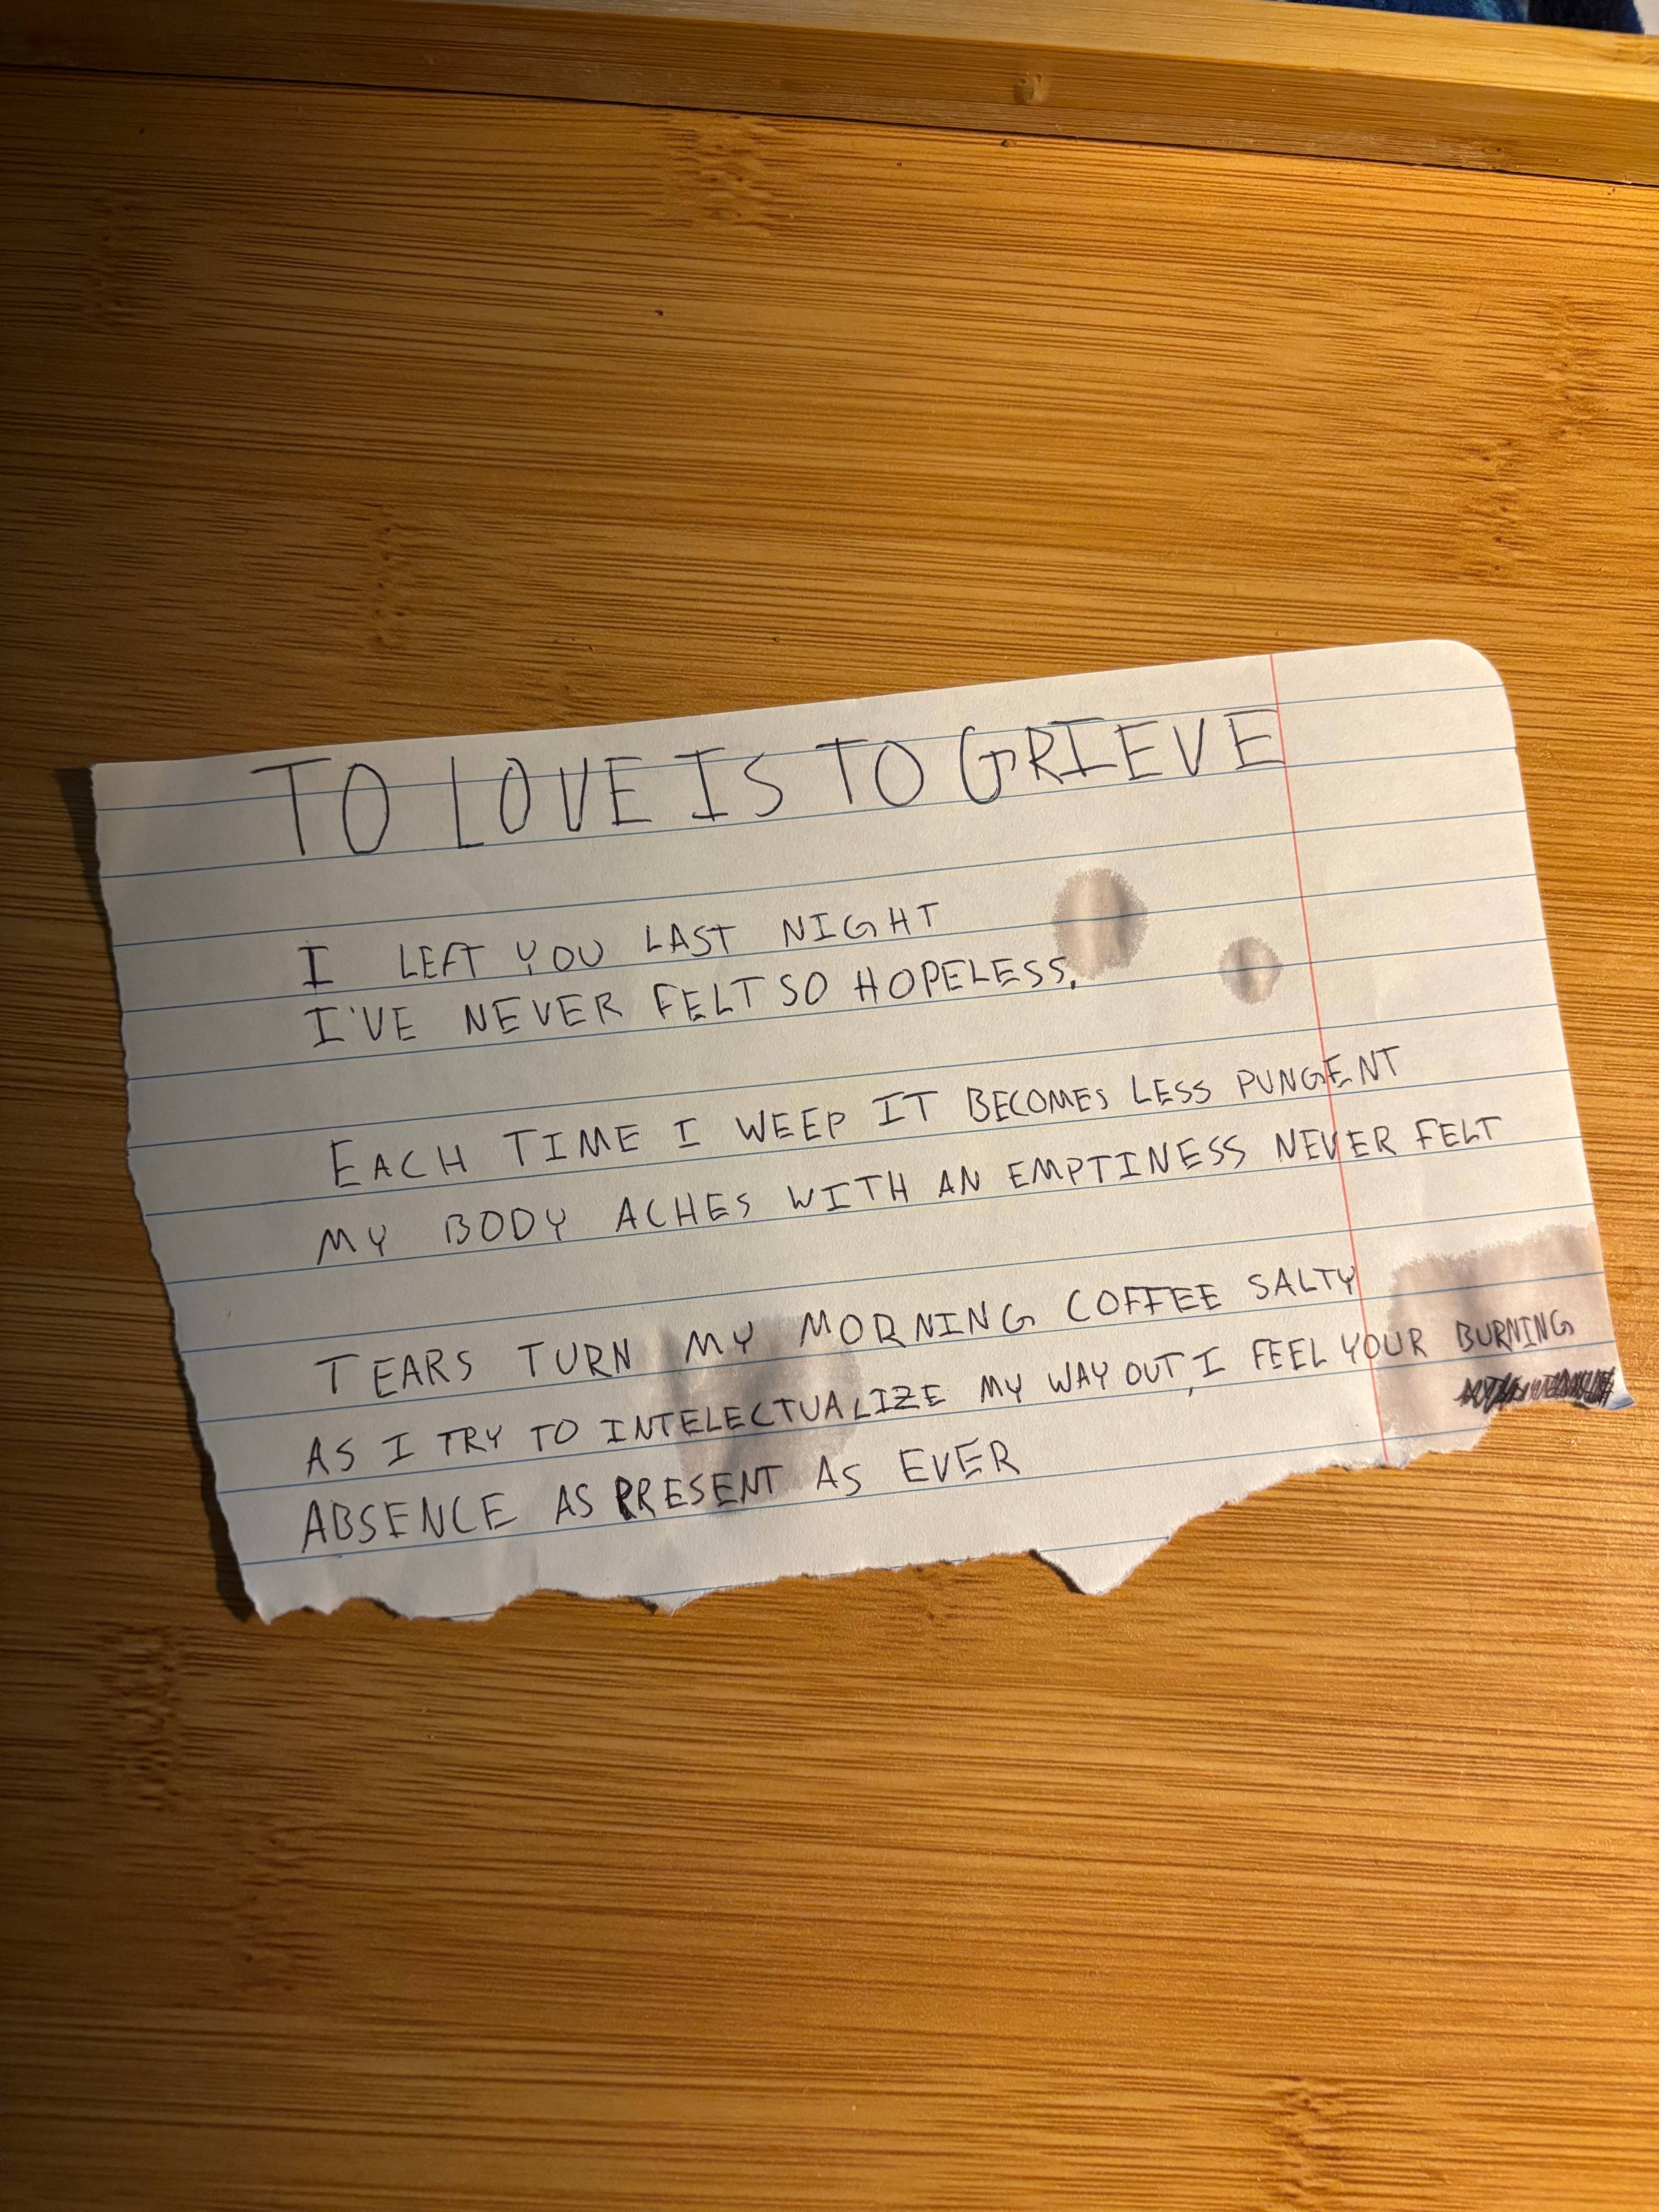 TO LOVE IS TO GRIEVE
I LEFT YOU LAST NIGHT
I'VE NEVER FELT SO HOPELESS,
EACH TIME I WEEP IT BECOMES LESS PUNGENT
MY BODY ACHES WITH AN EMPTINESS NEVER FELT
TEARS TURN MY MORNING COFFEE SALTY
AS I TRY TO INTELECTUALIZE MY WAY OUT, I FEEL YOUR BURNING
ABSENCE AS PRESENT AS EVER